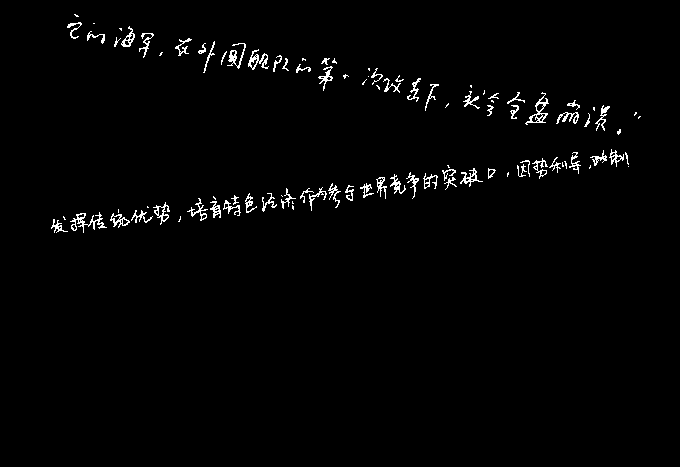 它的海军，在外国舰队的第一次攻击下，就会全盘崩溃。”
发挥传统优势，培育特色经济作为参与世界竞争的突破口，因势利导，